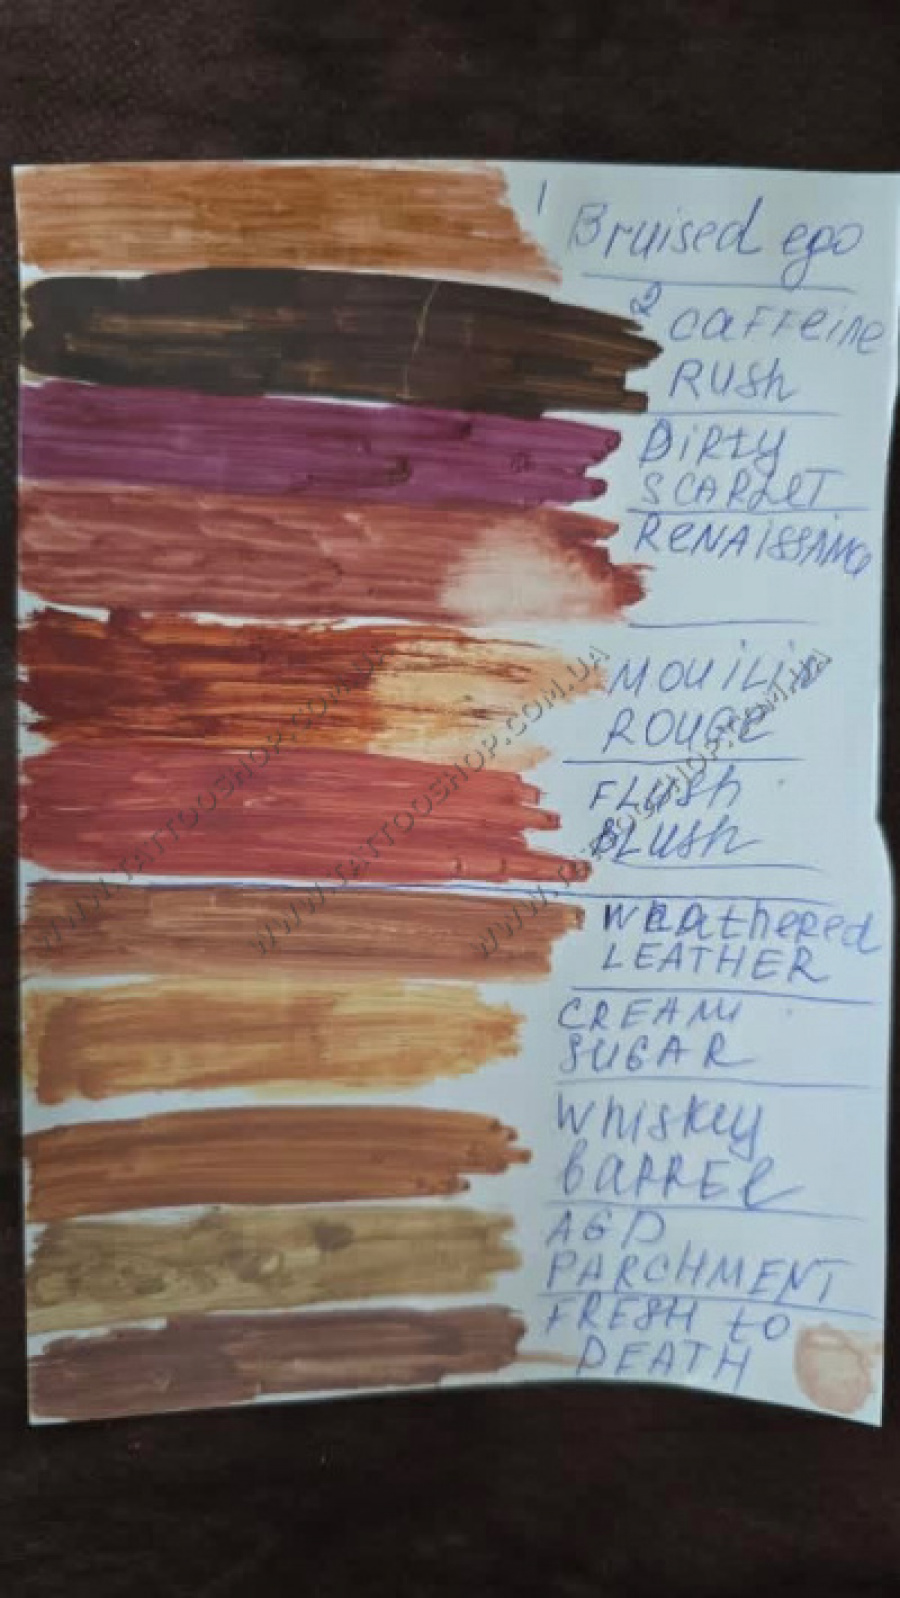 1
Bruised ego
2 CAFFeine
RUSh
DiRty
SCARLET
ReNAiSSANCe
MOUILIN
ROUGE
FLUSh
BLUSh
Weathered
LEATHER
CREAM
SUGAR
Whiskey
BARREl
AGD
PARCHMENT
FRESH to
DEATH
WWW.TATTOOSHOP.COM.UA
WWW.TATTOOSHOP.COM.UA
WWW.TATTOOSHOP.COM.UA